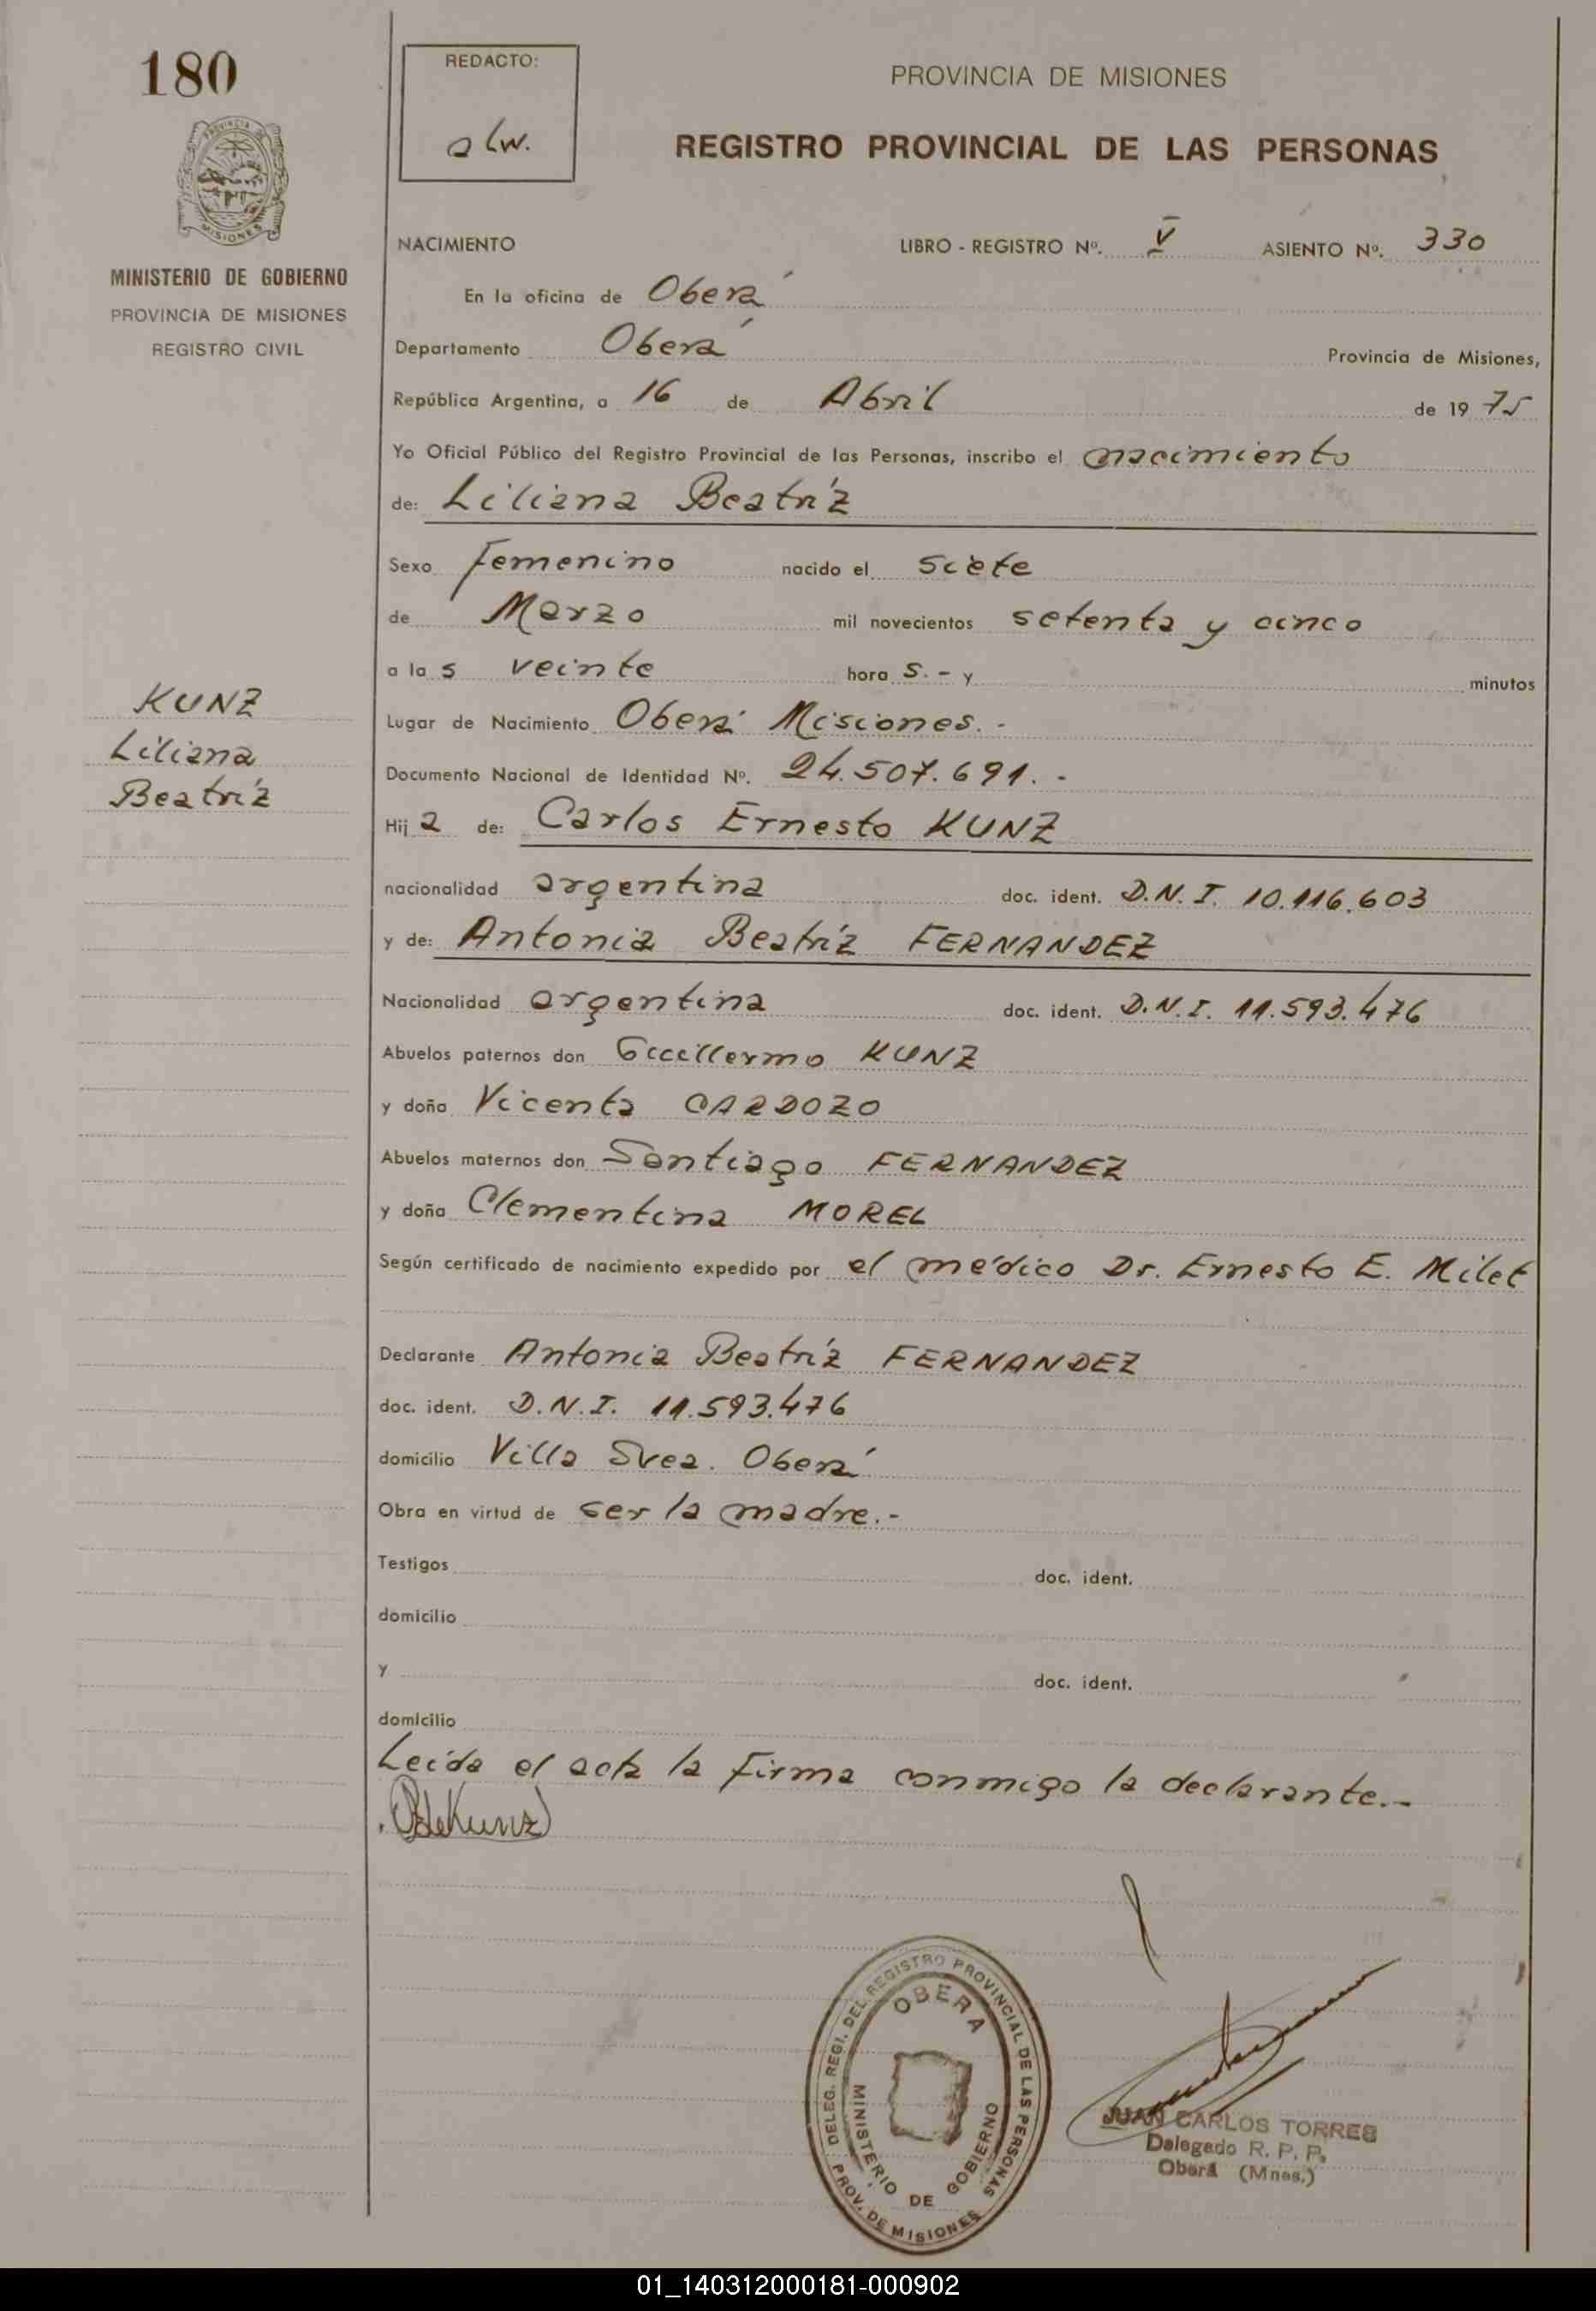 180
REDACTO:
alw.
PROVINCIA DE MISIONES
REGISTRO PROVINCIAL DE LAS PERSONAS
PROVINCIA DE
MISIONES
MINISTERIO DE GOBIERNO
PROVINCIA DE MISIONES
REGISTRO CIVIL
NACIMIENTO LIBRO - REGISTRO Nº. V ASIENTO Nº. 330
En la oficina de Oberá
Departamento Oberá Provincia de Misiones,
República Argentina, a 16 de Abril de 1975
Yo Oficial Público del Registro Provincial de las Personas, inscribo el nacimiento
de: Liliana Beatríz
Sexo femenino nacido el siete
de Marzo mil novecientos setenta y cinco
a las veinte horas.- y minutos
Lugar de Nacimiento Oberá Misiones.-
Documento Nacional de Identidad Nº. 24.507.691.-
Hija de: Carlos Ernesto KUNZ
nacionalidad argentina doc. ident. D.N.I. 10.116.603
y de: Antonia Beatríz FERNANDEZ
Nacionalidad argentina doc. ident. D.N.I. 11.593.476
Abuelos paternos don Guillermo KUNZ
y doña Vicenta CARDOZO
Abuelos maternos don Santiago FERNANDEZ
y doña Clementina MOREL
Según certificado de nacimiento expedido por el médico Dr. Ernesto E. Milet
Declarante Antonia Beatríz FERNANDEZ
doc. ident. D.N.I. 11.593.476
domicilio Villa Svea. Oberá
Obra en virtud de ser la madre.-
Testigos doc. ident.
domicilio
y doc. ident.
domicilio
Leída el acta la firma conmigo la declarante.-
KUNZ
Liliana
Beatríz
DELEG. REGI. DEL REGISTRO PROVINCIAL DE LAS PERSONAS
OBERA
MINISTERIO DE GOBIERNO
PROV. DE MISIONES
JUAN CARLOS TORRES
Delegado R. P. P.
Oberá (Mnes.)
01_140312000181-000902